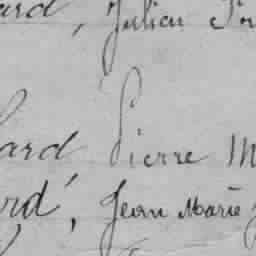 ard, Julien
ard, Pierre M
ard, Jean Marie